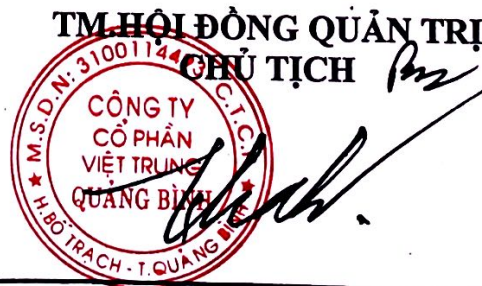 TM.HỘI ĐỒNG QUẢN TRỊ
CHỦ TỊCH
M.S.D.N: 3100114493 C.T.C.P
CÔNG TY
CỔ PHẦN
VIỆT TRUNG
QUẢNG BÌNH
H. BỐ TRẠCH - T. QUẢNG BÌNH